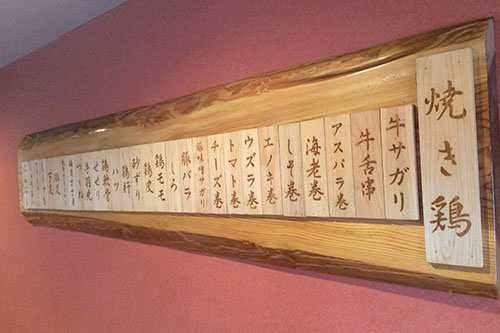 焼き鶏
牛サガリ
牛舌串
アスパラ巻
海老巻
しそ巻
エノキ巻
ウズラ巻
トマト巻
チーズ巻
豚味噌サガリ
豚バラ
しろ
鶏モモ
鶏皮
砂ずり
鶏肝
ハツ
鶏軟骨
せせり
手羽先
つくね